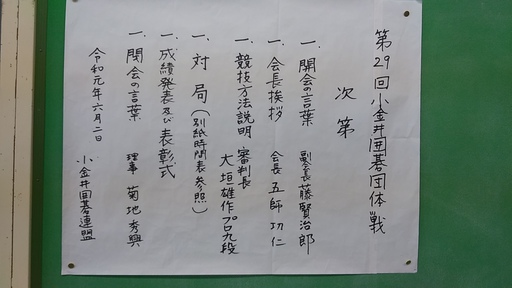 第29回小金井囲碁団体戦
次第
一、開会の言葉 副会長藤賢治郎
一、会長挨拶 会長 五師功仁
一、競技方法説明 審判長
大垣雄作プロ九段
一、対局(別紙時間表参照)
一、成績発表及び表彰式
一、閉会の言葉 理事 菊地秀興
令和元年六月二日
小金井囲碁連盟